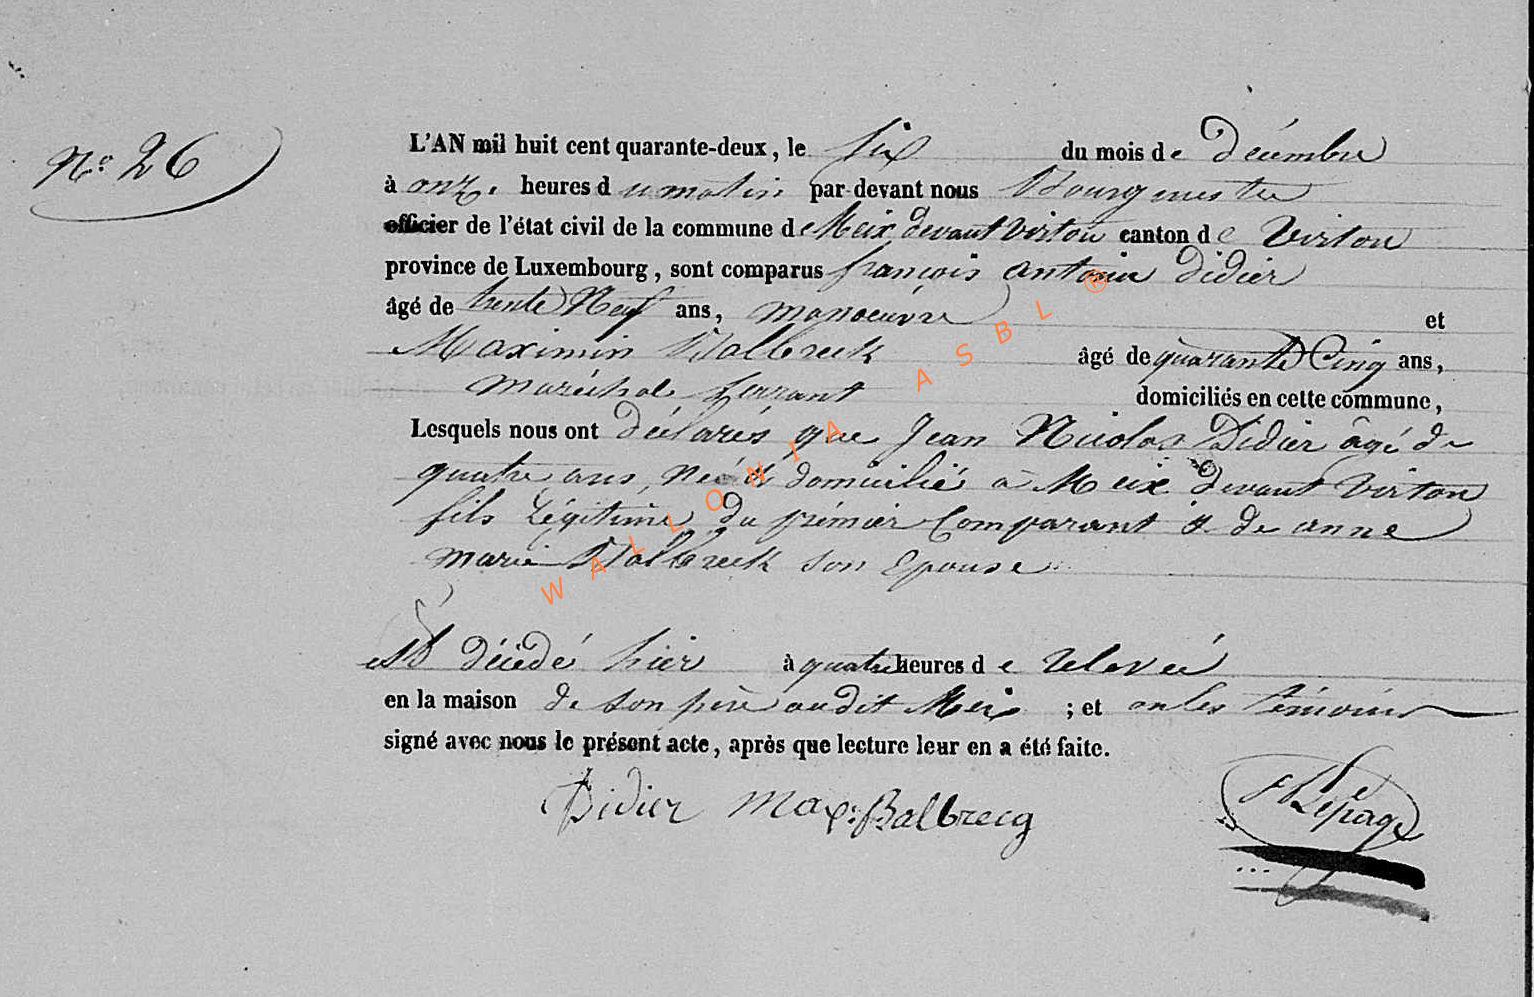 N.o 26
L'AN mil huit cent quarante-deux, le Six du mois de décembre
à onze heures du matin par-devant nous Bourgmestre
officier de l'état civil de la commune de Meix devant Virton canton de Virton
province de Luxembourg, sont comparus françois antoine Didier
âgé de trente Neuf ans, manoeuvre et
Maximin Balbreck âgé de quarante Cinq ans,
maréchal ferrant domiciliés en cette commune,
Lesquels nous ont déclarés que Jean Nicolas Didier âgé de
quatre ans, Né et domicilié à Meix devant Virton
fils Légitime du prémier Comparant & de anne
marie Balbreck son Epouse
est décédé hier à quatre heures de relevée
en la maison de son père audit Meix ; et ont les témoins
signé avec nous le présent acte, après que lecture leur en a été faite.
Didier Max: Balbrecq Lepage
WALLONIA ASBL ®